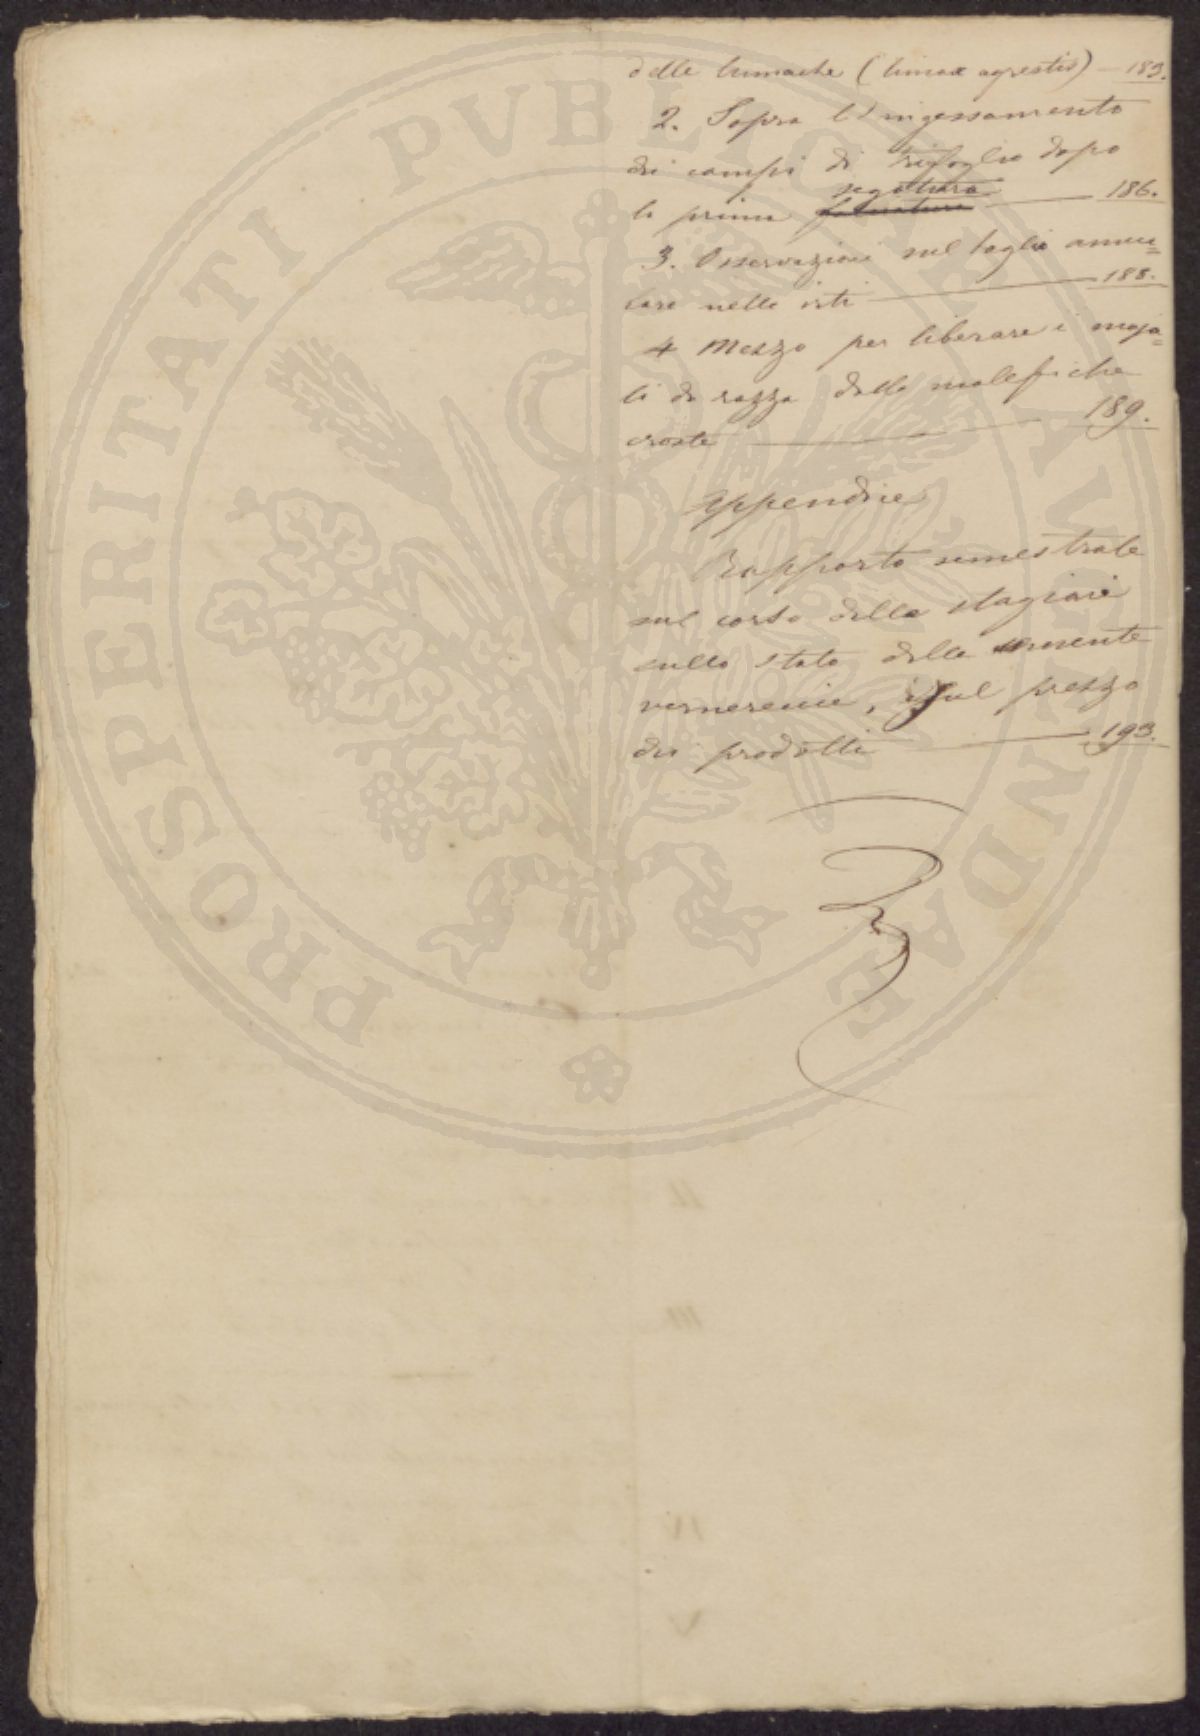 delle lumache (limax agrestis) — 183.
2. Sopra l'ingessamento
dei campi di trifoglio dopo
la prima falciatura segatura — 186.
3. Osservazioni sul taglio annu=
lare nelle viti — 188.
4 Mezzo per liberare i maja=
li di razza dalle malefiche
croste — 189.
Appendice
Rapporto semestrale
sul corso delle stagioni
sullo stato delle semente
vernerecie, e sul prezzo
dei prodotti — 193.
PROSPERITATI PVBLICAE AVGENDAE